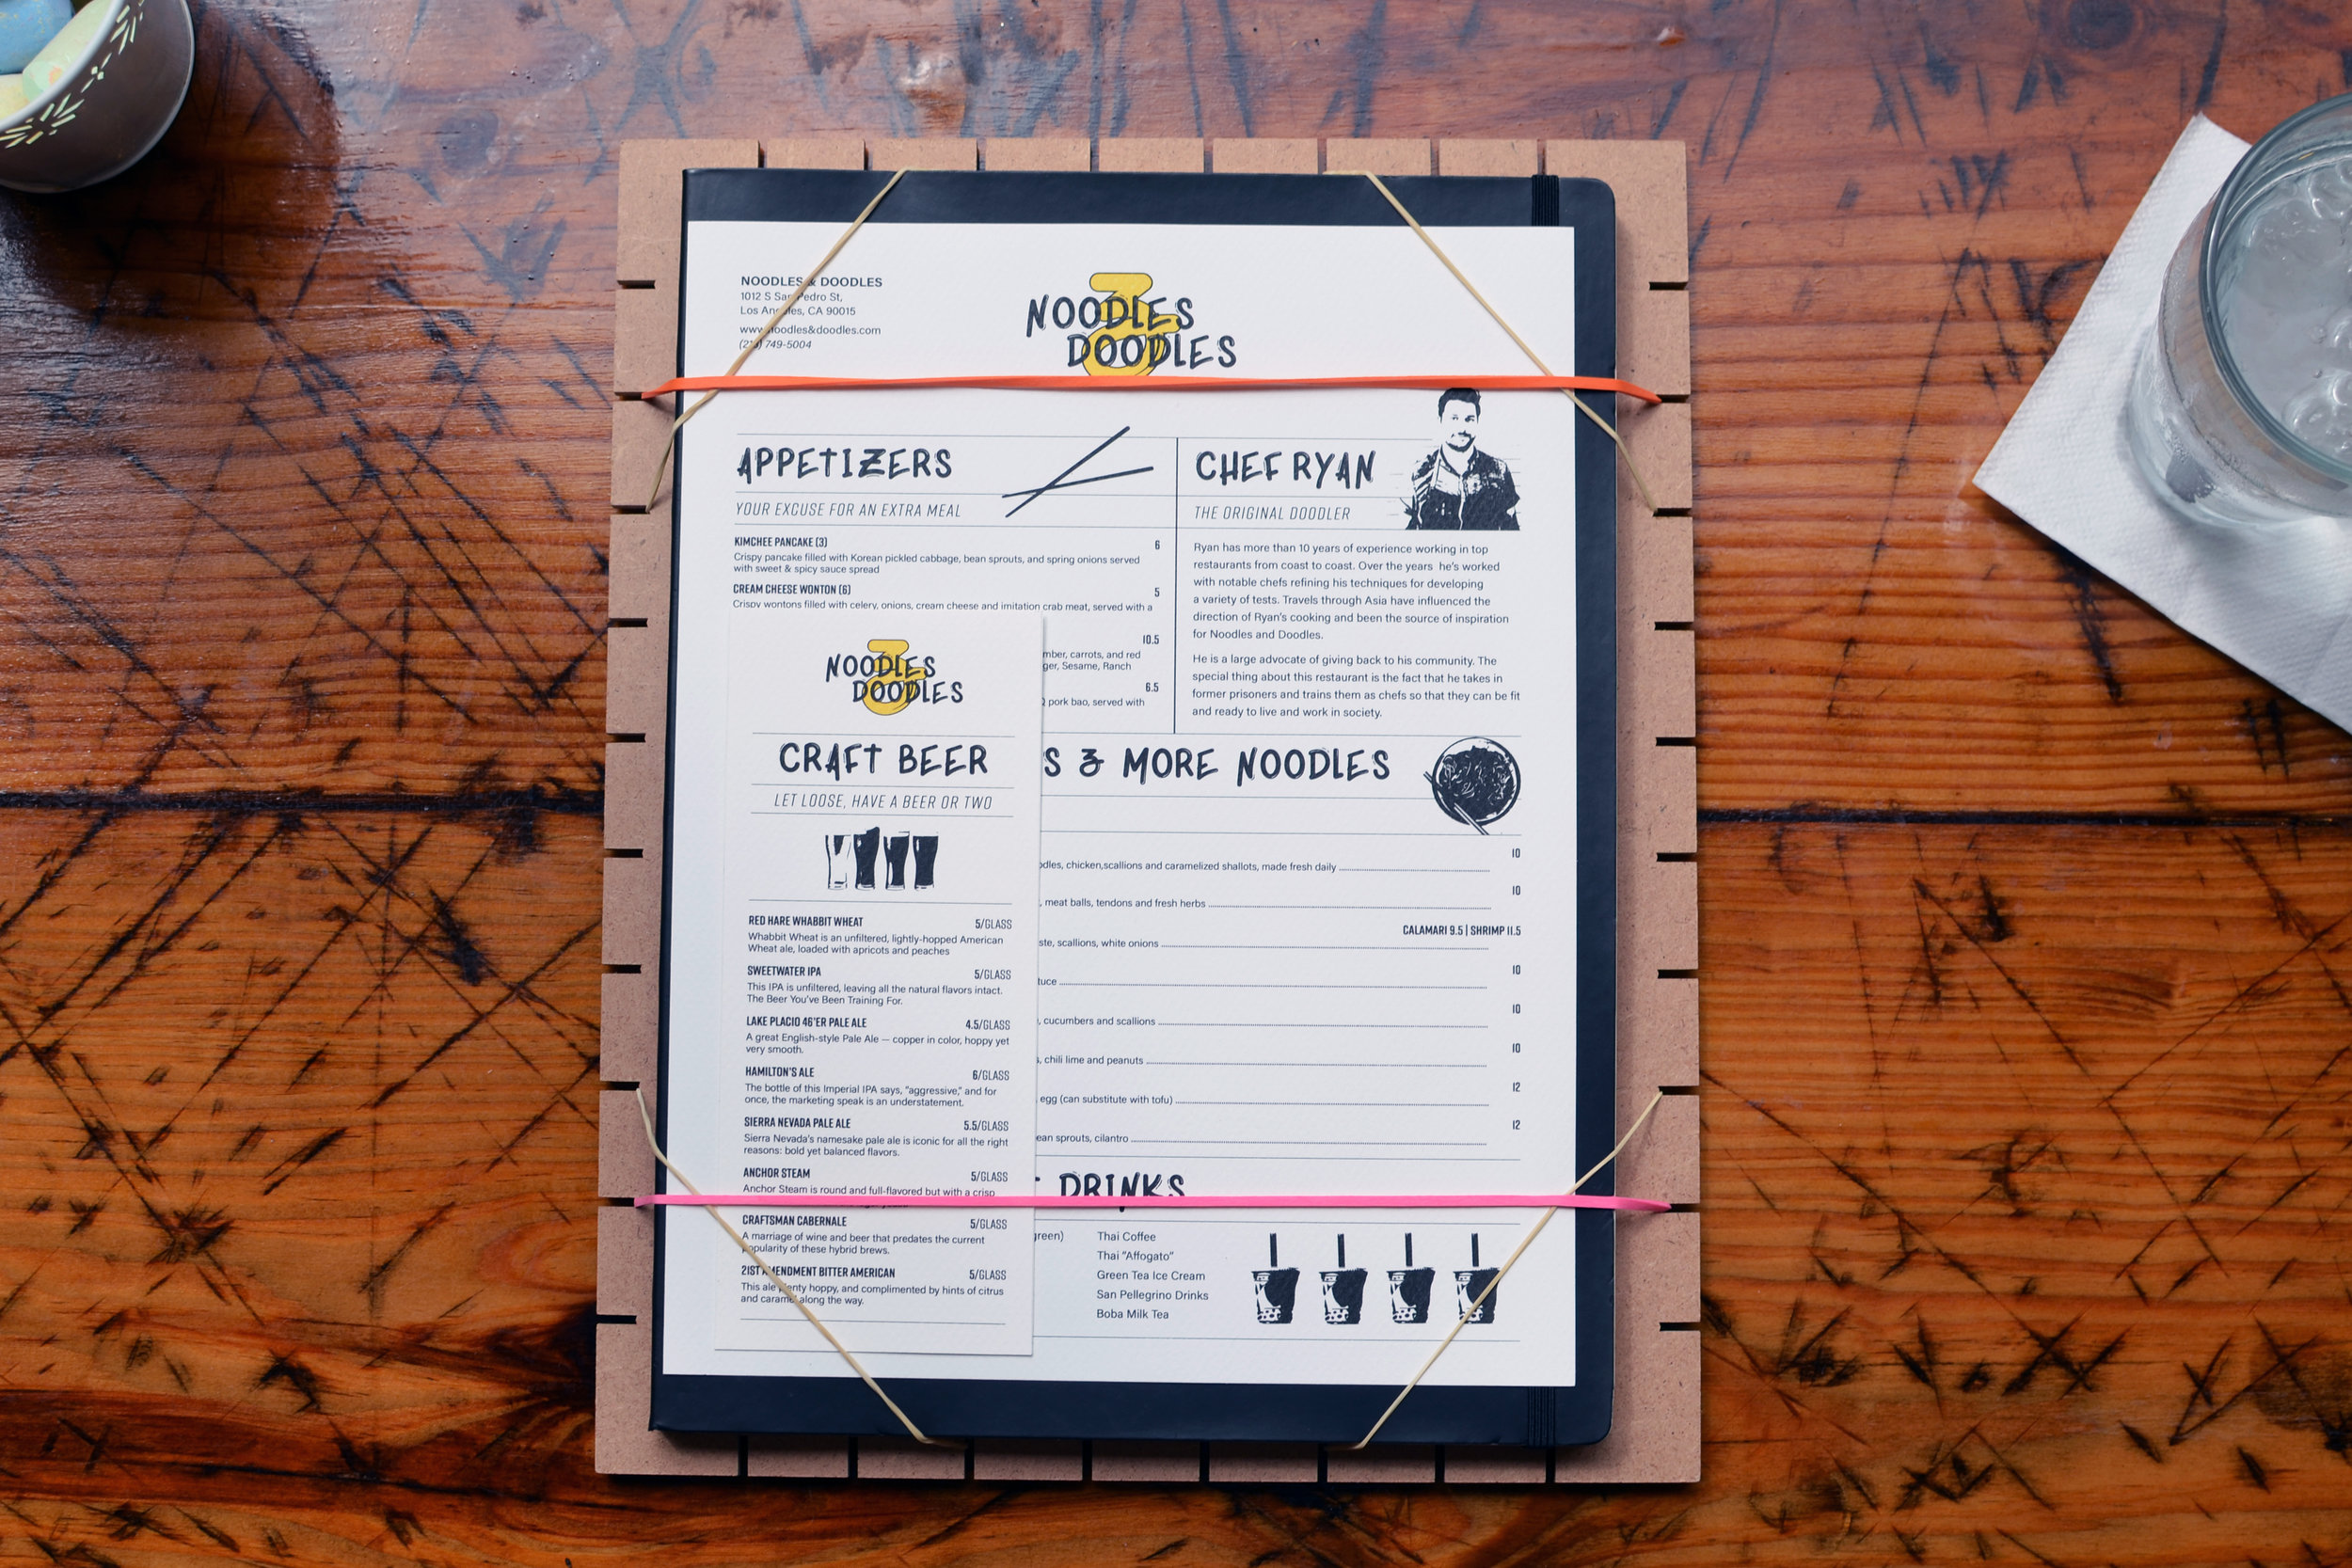 NOODLES & DOODLES
1012 S San Pedro St,
Los Angeles, CA 90015
www.noodles&doodles.com
749-5004
NOODLES
&
DOODLES
APPETIZERS
YOUR EXCUSE FOR AN EXTRA MEAL
KIMCHEE PANCAKE (3) 6
Crispy pancake filled with Korean pickled cabbage, bean sprouts, and spring onions served
with sweet & spicy sauce spread
CREAM CHEESE WONTON (6) 5
Crispy wontons filled with celery, onions, cream cheese and imitation crab meat, served with a
10.5
carrots, and red
Sesame, Ranch
6.5
pork bao, served with
CHEF RYAN
THE ORIGINAL DOODLER
Ryan has more than 10 years of experience working in top
restaurants from coast to coast. Over the years he's worked
with notable chefs refining his techniques for developing
a variety of tests. Travels through Asia have influenced the
direction of Ryan's cooking and been the source of inspiration
for Noodles and Doodles.
He is a large advocate of giving back to his community. The
special thing about this restaurant is the fact that he takes in
former prisoners and trains them as chefs so that they can be fit
and ready to live and work in society.
S & MORE NOODLES
10
chicken,scallions and caramelized shallots, made fresh daily
10
, meat balls, tendons and fresh herbs
CALAMARI 9.5 | SHRIMP 11.5
scallions, white onions
10
10
, cucumbers and scallions
10
, chili lime and peanuts
12
egg (can substitute with tofu)
12
sprouts, cilantro
DRINKS
Thai Coffee
Thai "Affogato"
Green Tea Ice Cream
San Pellegrino Drinks
Boba Milk Tea
NOODLES
&
DOODLES
CRAFT BEER
LET LOOSE, HAVE A BEER OR TWO
RED HARE WHABBIT WHEAT 5/GLASS
Whabbit Wheat is an unfiltered, lightly-hopped American
Wheat ale, loaded with apricots and peaches
SWEETWATER IPA 5/GLASS
This IPA is unfiltered, leaving all the natural flavors intact.
The Beer You've Been Training For.
LAKE PLACID 46'ER PALE ALE 4.5/GLASS
A great English-style Pale Ale — copper in color, hoppy yet
very smooth.
HAMILTON'S ALE 6/GLASS
The bottle of this Imperial IPA says, "aggressive," and for
once, the marketing speak is an understatement.
SIERRA NEVADA PALE ALE 5.5/GLASS
Sierra Nevada's namesake pale ale is iconic for all the right
reasons: bold yet balanced flavors.
ANCHOR STEAM 5/GLASS
Anchor Steam is round and full-flavored but with a crisp
CRAFTSMAN CABERNALE 5/GLASS
A marriage of wine and beer that predates the current
popularity of these hybrid brews.
21ST AMENDMENT BITTER AMERICAN 5/GLASS
This ale plenty hoppy, and complimented by hints of citrus
and caramel along the way.